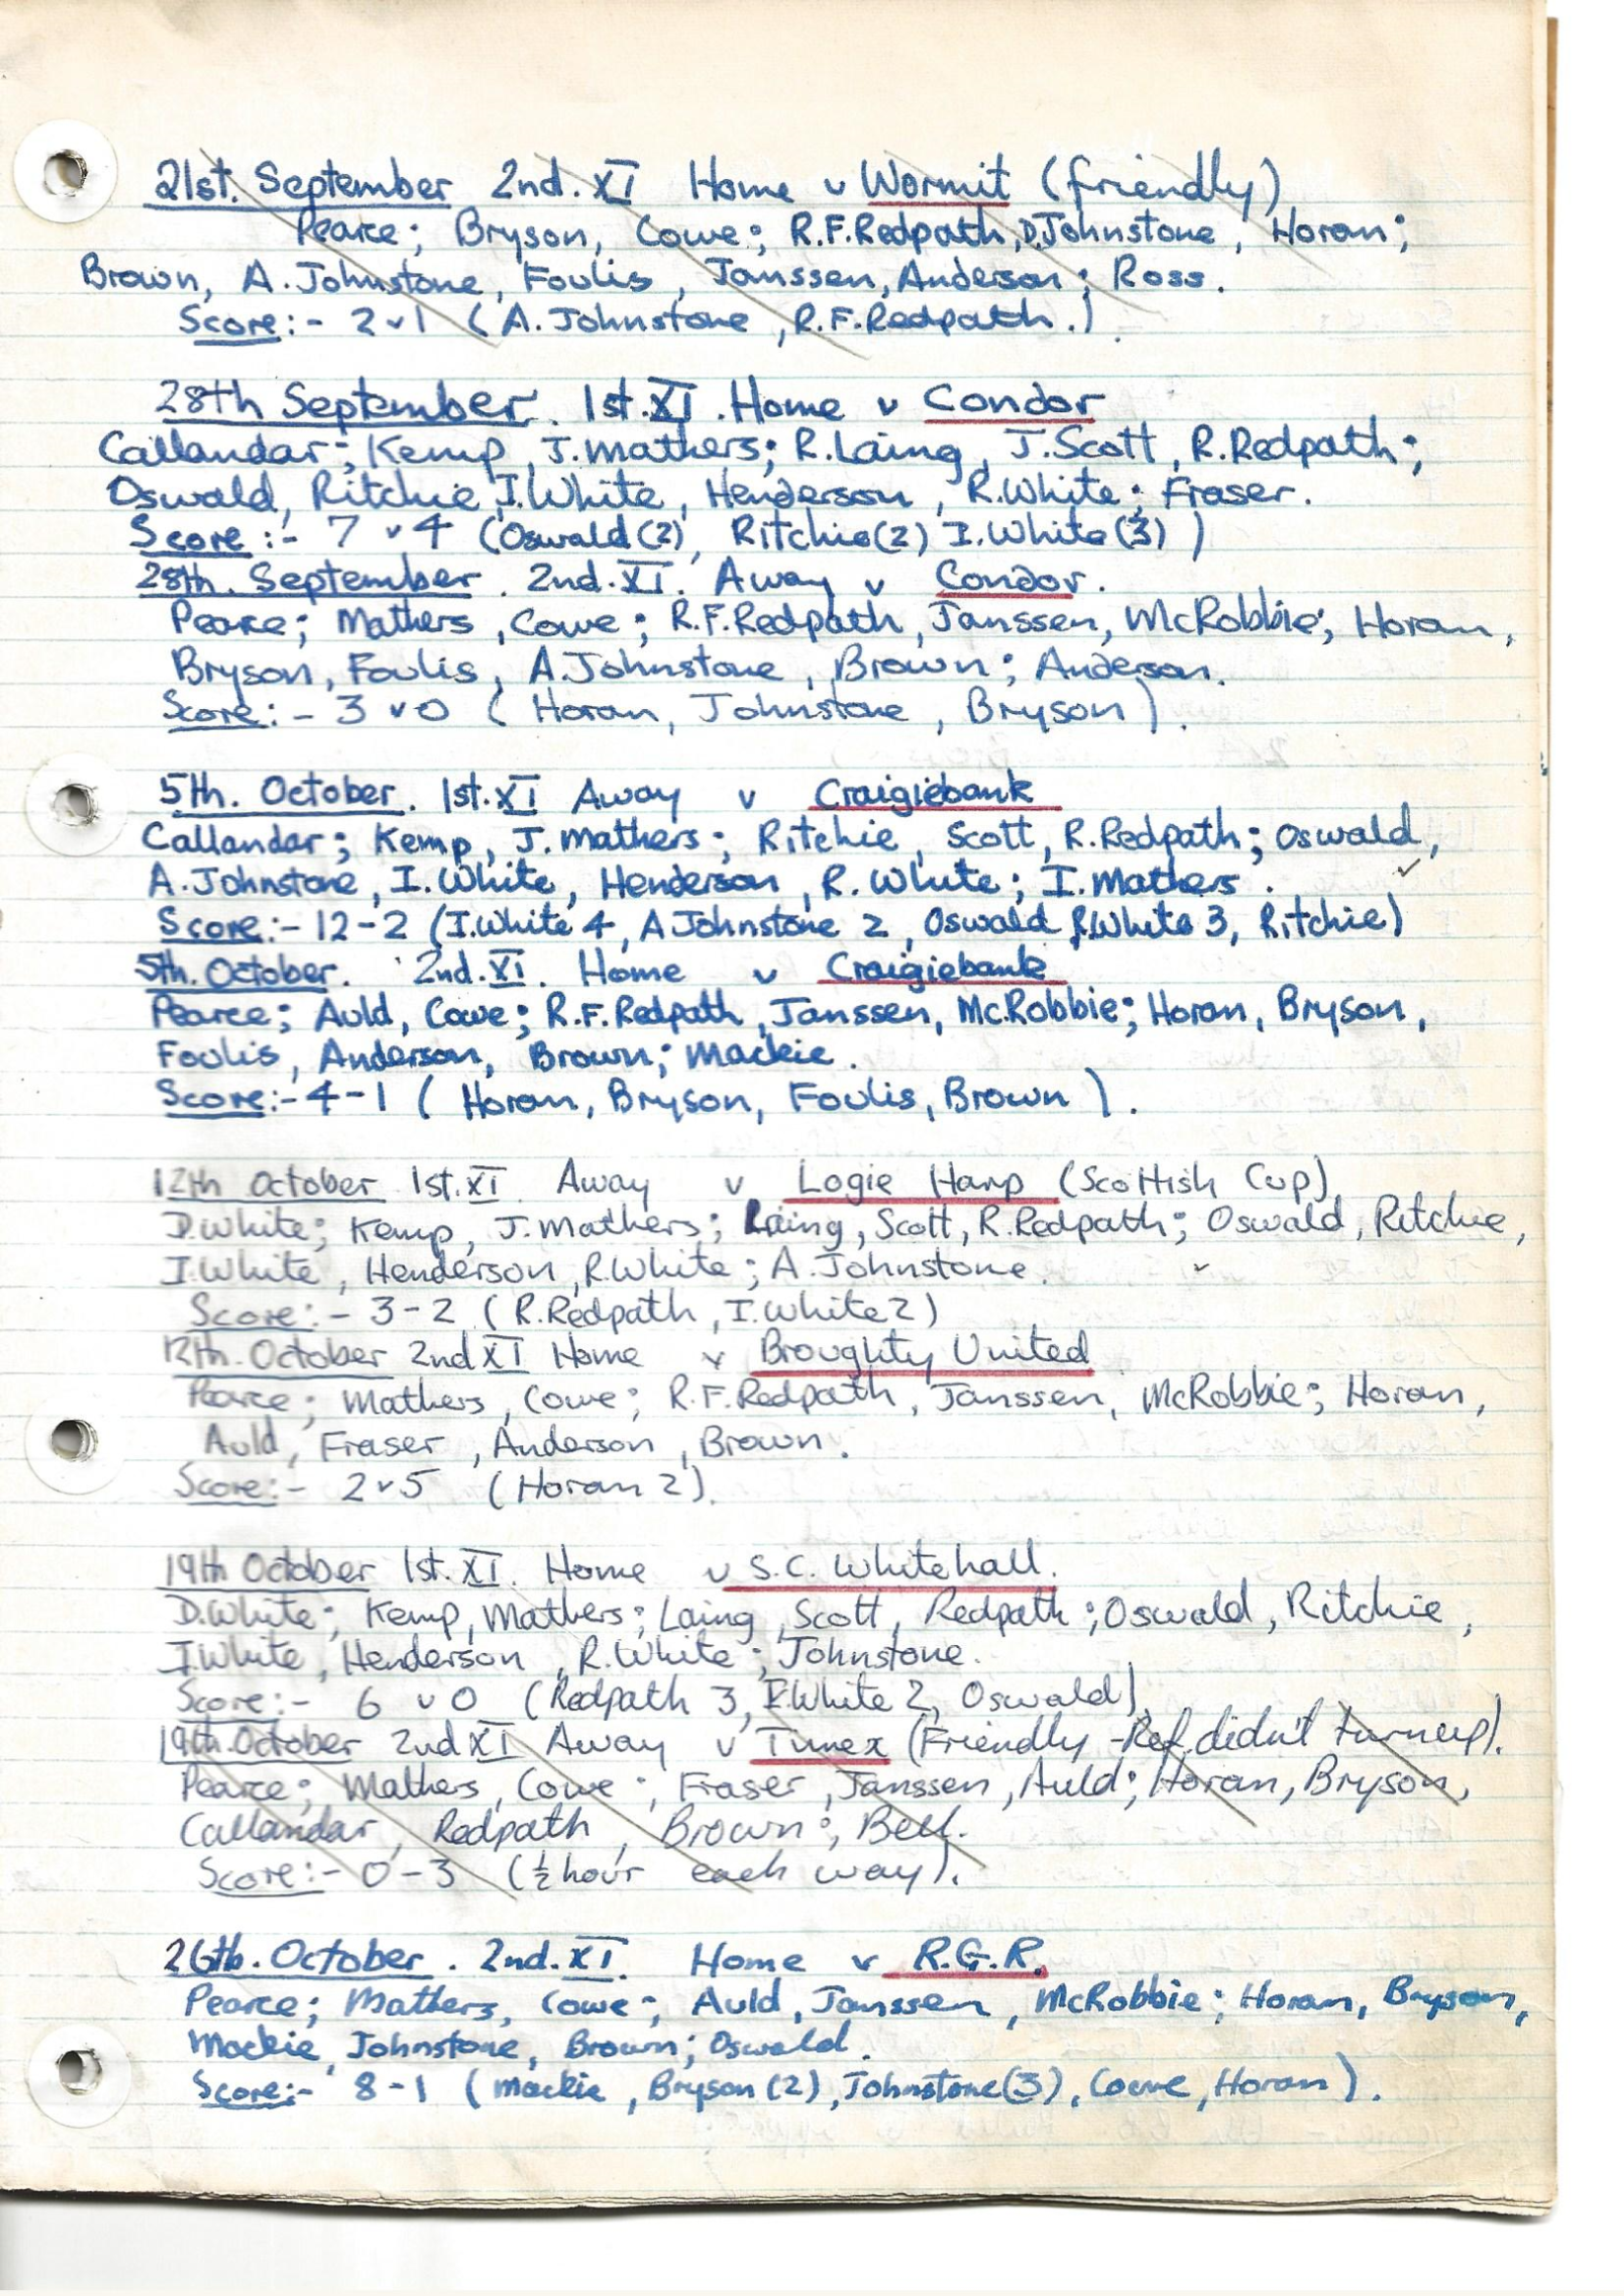 21st. September 2nd. XI Home v Wormit (friendly)
Pearce; Bryson, Cowe; R.F.Redpath, D.Johnstone, Horan;
Brown, A.Johnstone, Foulis, Janssen, Anderson; Ross.
Score:- 2 v 1 (A.Johnstone, R.F.Redpath.)
28th September. 1st. XI. Home v Condor
Callandar; Kemp, J.Mathers; R.Laing, J.Scott, R.Redpath;
Oswald, Ritchie, I.White, Henderson, R.White; Fraser.
Score:- 7 v 4 (Oswald(2), Ritchie(2) I.White(3))
28th. September. 2nd. XI. Away v Condor.
Pearce; Mathers, Cowe; R.F.Redpath, Janssen, McRobbie; Horan,
Bryson, Foulis, A.Johnstone, Brown; Anderson.
Score:- 3 v 0 (Horan, Johnstone, Bryson).
5th. October. 1st. XI Away v Craigiebank
Callandar; Kemp, J.Mathers; Ritchie, Scott, R.Redpath; Oswald,
A.Johnstone, I.White, Henderson, R.White; I.Mathers.
Score:- 12-2 (I.White 4, A Johnstone 2, Oswald, R.White 3, Ritchie)
5th. October. 2nd. XI. Home v Craigiebank
Pearce; Auld, Cowe; R.F.Redpath, Janssen, McRobbie; Horan, Bryson,
Foulis, Anderson, Brown; Mackie.
Score:- 4-1 (Horan, Bryson, Foulis, Brown).
12th October 1st. XI. Away v Logie Harp (Scottish Cup)
D.White; Kemp, J.Mathers; Laing, Scott, R.Redpath; Oswald, Ritchie,
I.White, Henderson, R.White; A.Johnstone.
Score:- 3-2 (R.Redpath, I.White 2)
12th. October 2nd XI Home v Broughty United
Pearce; Mathers, Cowe; R.F.Redpath, Janssen, McRobbie; Horan,
Auld, Fraser, Anderson, Brown.
Score:- 2 v 5 (Horan 2).
19th October 1st. XI. Home v S.C. Whitehall.
D.White; Kemp, Mathers; Laing, Scott, Redpath; Oswald, Ritchie,
I.White, Henderson, R.White; Johnstone.
Score:- 6 v 0 (Redpath 3, I.White 2, Oswald)
19th. October 2nd XI Away v Timex (Friendly - Ref. didn't turn up).
Pearce; Mathers, Cowe; Fraser, Janssen, Auld; Horan, Bryson,
Callandar, Redpath, Brown; Bell.
Score:- 0-3 (½ hour each way).
26th. October. 2nd. XI. Home v R.G.R.
Pearce; Mathers, Cowe; Auld, Janssen, McRobbie; Horan, Bryson,
Mackie, Johnstone, Brown; Oswald.
Score:- 8-1 (Mackie, Bryson(2), Johnstone(3), Cowe, Horan).